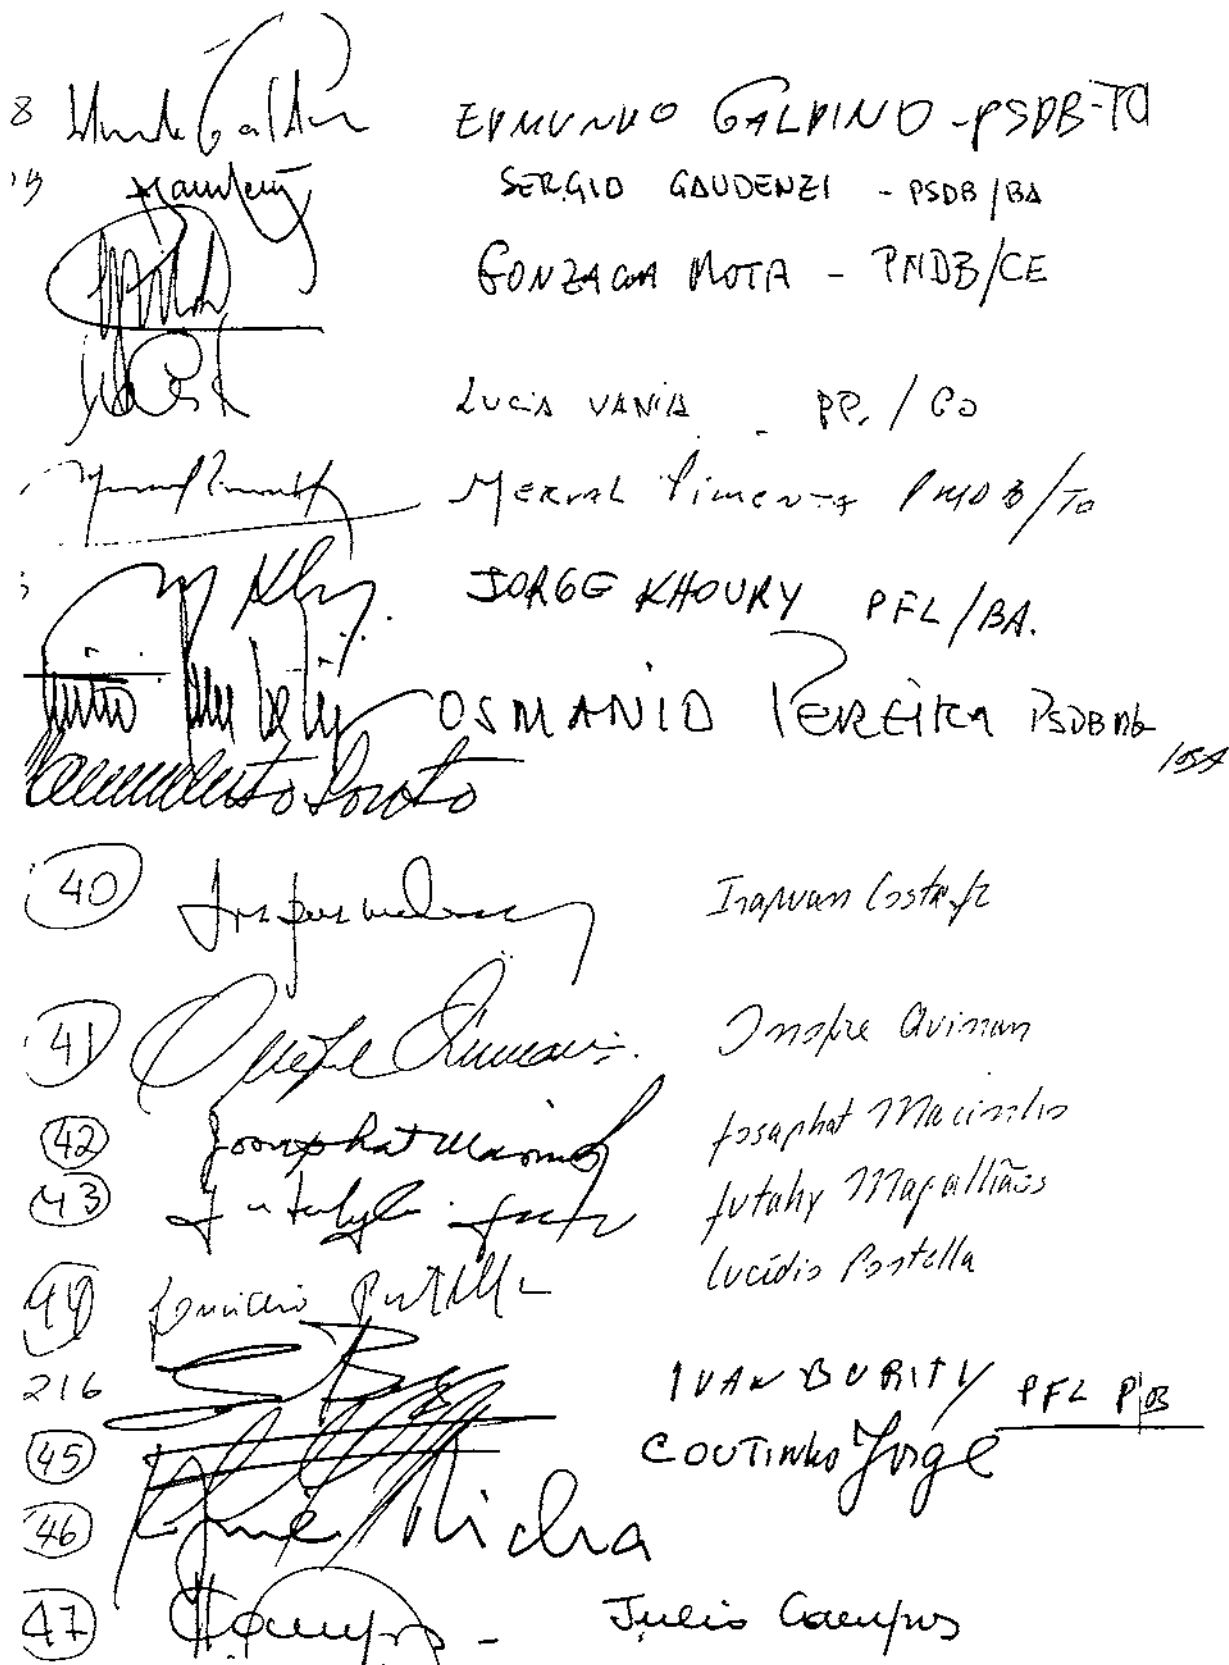 8 EDMUNDO GALDINO - PSDB-TO
19 SERGIO GAUDENZI - PSDB/BA
GONZAGA MOTA - PMDB/CE
LUCIA VANIA - PP. / GO
MERVAL PIMENTA PMDB/TO
JORGE KHOURY PFL/BA.
OSMANIO PEREIRA PSDB MG
40 Irapuan Costa Jr
41 Onofre Quinan
42 Josaphat Marinho Josaphat Marinho
43 Jutahy Magalhães
44 Lucídio Portella Lucídio Portella
216 IVAN BURITY PFL PB
45 COUTINHO Jorge
46 José Richa
47 Campos - Julio Campos